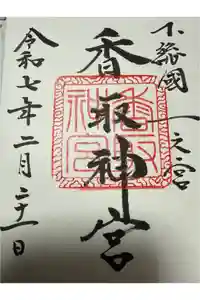 下総國一之宮
香取神宮
令和七年二月二十一日
香取神宮